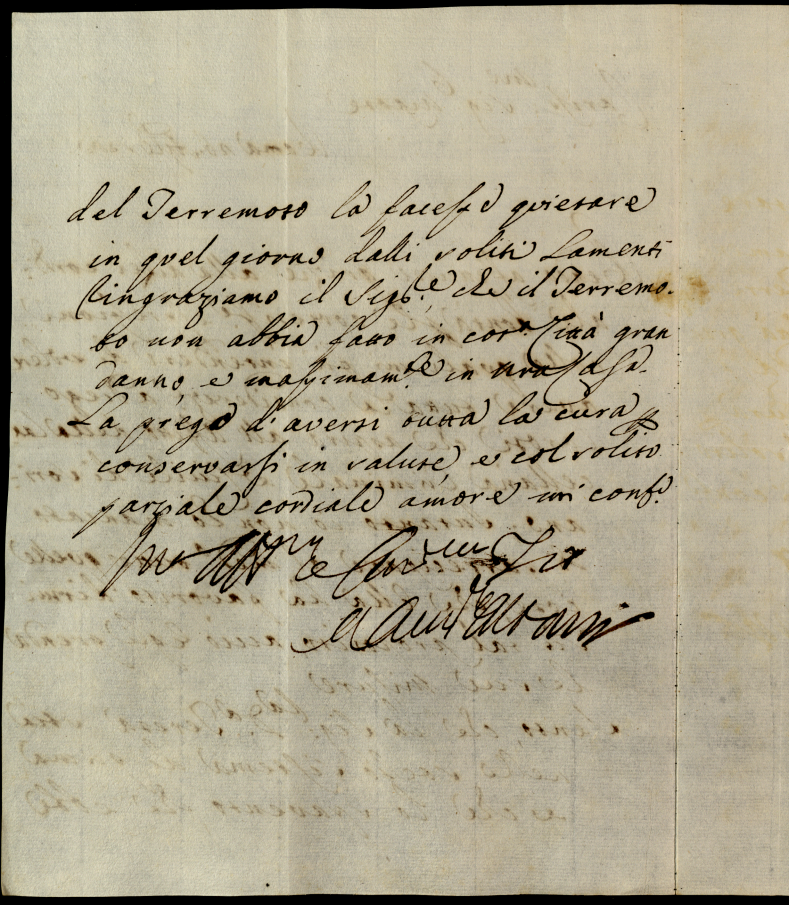 del Terremoto la facesse quietare
in quel giorno dalli soliti Lamenti
Ringraziamo il Sig.re che il Terremo-
to non abbia fatto in cot.a Città gran
danno e massimam.te in nra Casa.
La prego d'aversi tutta la cura p
conservarsi in salute, e col solito
parziale cordiale amore mi conf.o
Aff.mo e Zio